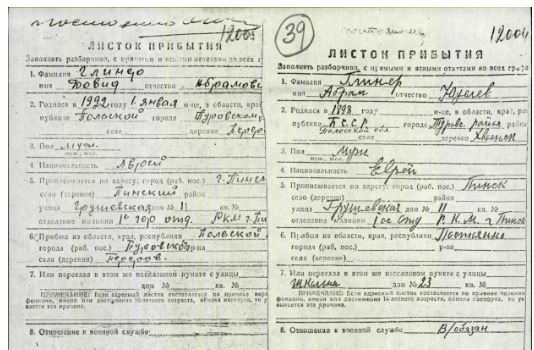 12005
ЛИСТОК ПРИБЫТИЯ
Заполнять разборчиво, с прямыми и ясными ответами во всех г
1. Фамилия Глиндо
имя Довид отчество Абрамов
2. Родился в 1922 году 1 января
публика Полесской города Туровском
село деревня
3. Пол муж.
муж., жен.
4. Национальность Яврей
5. Прописывается по адресу: город (раб. пос.) г. Пинск
село (деревня) Пинский район
улица Грушевская дом № 11 кв. №
отделение милиции 1е гор отд. РКМ г. Пи
6. Прибыл из области, края, республики Полеской
города (раб. пос.) Туровского р-на
село (деревня)
7. Или переехал в этом же населенном пункте с улицы
дом № кв. №
ПРИМЕЧАНИЕ: Если адресный листок составляется по причине пере
фамилии, имени или достижения 16-летнего возраста, обмена паспорта, то у
вается эта причина.
8. Отношение к военной службе
39
12004
ЛИСТОК ПРИБЫТИЯ
Заполнять разборчиво, с прямыми и ясными ответами во всех гра
1. Фамилия Глинер
имя Абрам отчество
2. Родился в 1898 году м-це, в области, крае, рес
публика Б.С.С.Р города Туров. район
Полесской обл. село деревня
3. Пол Муж
муж., жен.
4. Национальность Еврей
5. Прописывается по адресу: город (раб. пос.) Пинск
село (деревня) район
улица Грушевская дом № 11 кв. №
отделение милиции 1ое Отд Р.К.М. г. Пинск
6. Прибыл из области, края, республики Постоянно
города (раб. пос.) р-на
село (деревня)
7. Или переехал в этом же населенном пункте с улицы
Школьна дом № 23 кв. №
ПРИМЕЧАНИЕ: Если адресный листок составляется по причине перемен
фамилии, имени или достижения 16-летнего возраста, обмена паспорта, то ук
вывается эта причина.
8. Отношение к военной службе В/обязан